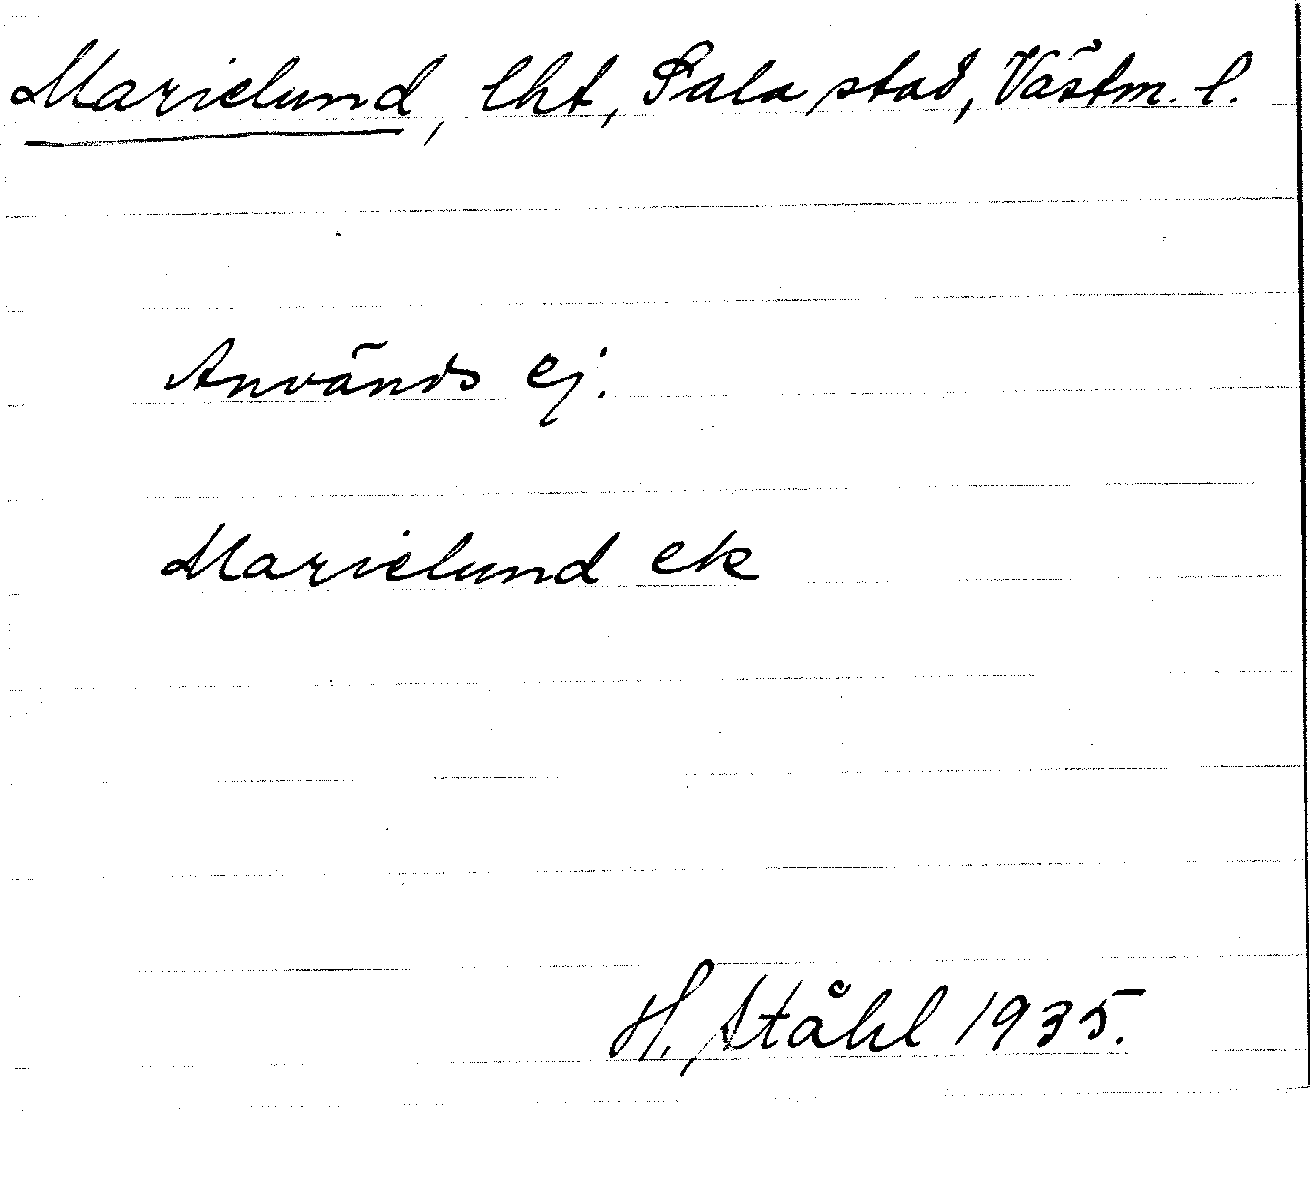 Marielund, lht, Sala stad, Västm. l.
Används ej.
Marielund ek
H. Ståhl 1935.